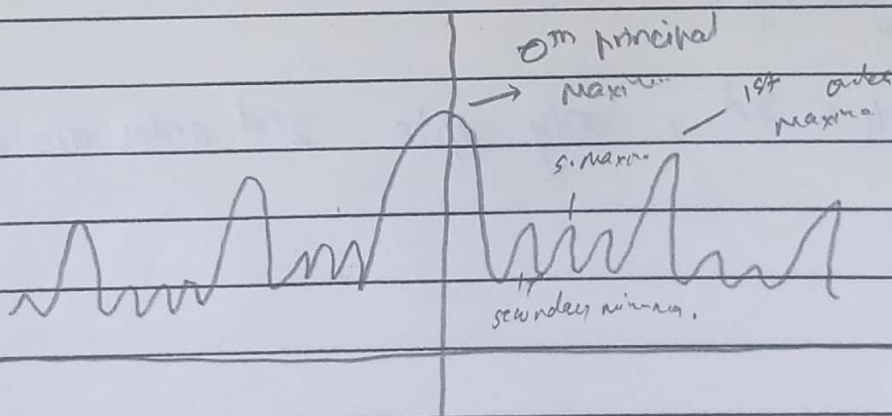 0th principal
Maxim
1st order
Maxima
s. maxim.
secondary minima.